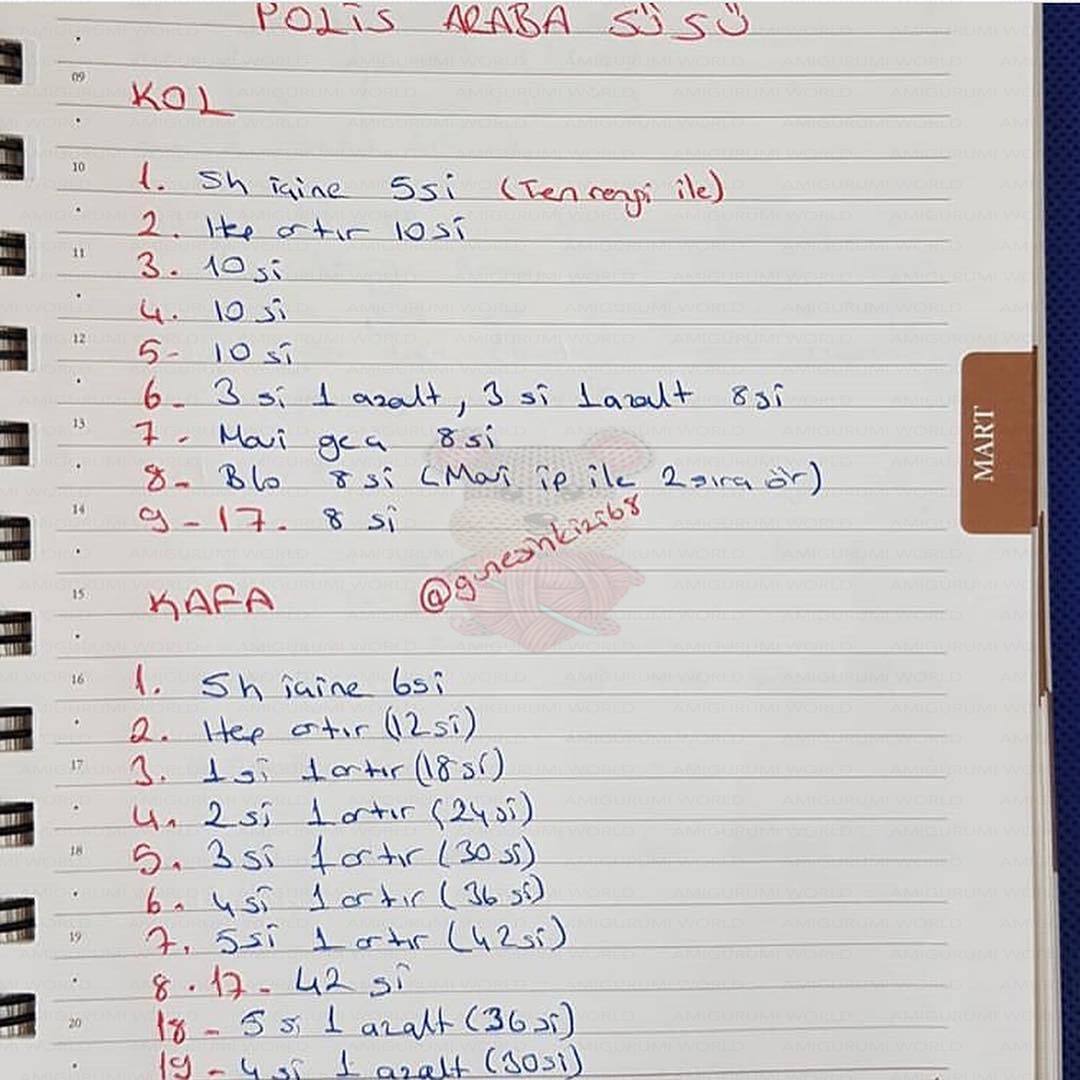 POLİS ARABA SÜSÜ
09
KOL
10
1. Sh içine 5si (Ten rengi ile)
2. Hep artır 10si
11
3. 10si
4. 10 si
12
5- 10 si
6- 3 si 1 azalt, 3 si 1azalt 8si
13
7- Mavi geç 8si
8- Blo 8si (Mavi ip ile 2 sıra ör)
14
9-17. 8 si
@guneshkizi68
15
KAFA
16
1. Sh içine 6si
2. Hep artır (12si)
17
3. 1 si 1 artır (18si)
4. 2 si 1 artır (24si)
18
5. 3 si 1 artır (30 si)
6. 4 si 1 artır (36 si)
19
7. 5si 1 artır (42si)
8.17- 42 si
20
18- 5 si 1 azalt (36si)
19- 4 si 1 azalt (30si)
MART
AMIGURUMI WORLD